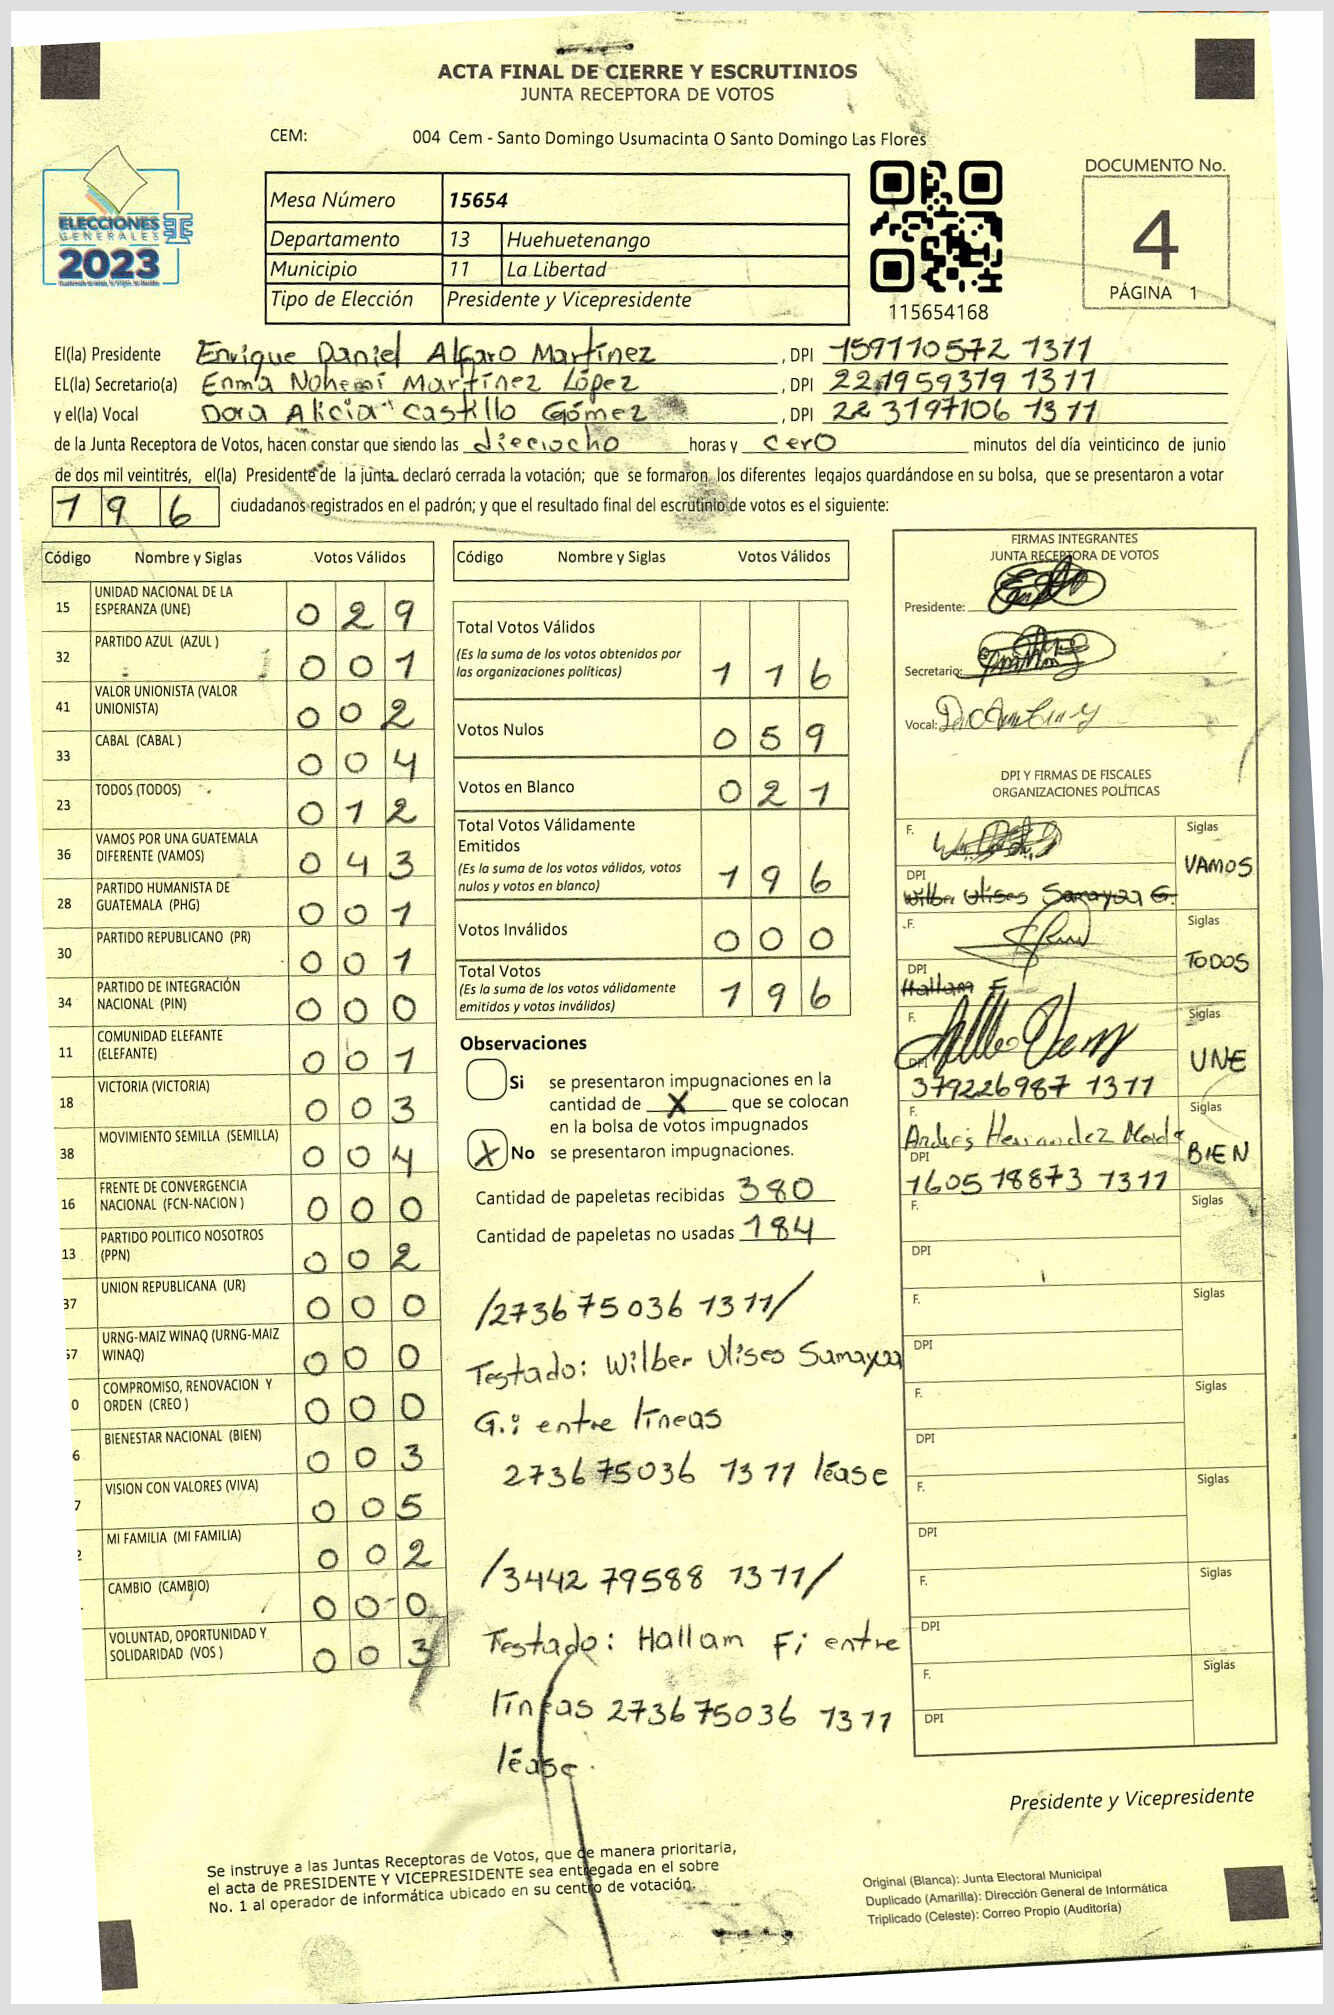 ACTA FINAL DE CIERRE Y ESCRUTINIOS
JUNTA RECEPTORA DE VOTOS
CEM: 004 Cem - Santo Domingo Usumacinta O Santo Domingo Las Flores
ELECCIONES
GENERALES
2023
Mesa Número 15654
Departamento 13 Huehuetenango
Municipio 11 La Libertad
Tipo de Elección Presidente y Vicepresidente
115654168
DOCUMENTO No.
4
PÁGINA 1
El(la) Presidente Enrique Daniel Alfaro Martínez, DPI 159110572 1311
EL(la) Secretario(a) Enma Nohemí Martínez López, DPI 221959379 1311
y el(la) Vocal Dora Alicia Castillo Gómez, DPI 223197106 1311
de la Junta Receptora de Votos, hacen constar que siendo las dieciocho horas y cero minutos del día veinticinco de junio
de dos mil veintitrés, el(la) Presidente de la junta declaró cerrada la votación; que se formaron los diferentes legajos quardándose en su bolsa, que se presentaron a votar
196 ciudadanos registrados en el padrón; y que el resultado final del escrutinio de votos es el siguiente:
Código Nombre y Siglas Votos Válidos
15 UNIDAD NACIONAL DE LA ESPERANZA (UNE) 029
32 PARTIDO AZUL (AZUL ) 001
41 VALOR UNIONISTA (VALOR UNIONISTA) 002
33 CABAL (CABAL ) 004
23 TODOS (TODOS) 012
36 VAMOS POR UNA GUATEMALA DIFERENTE (VAMOS) 043
28 PARTIDO HUMANISTA DE GUATEMALA (PHG) 001
30 PARTIDO REPUBLICANO (PR) 001
34 PARTIDO DE INTEGRACIÓN NACIONAL (PIN) 000
11 COMUNIDAD ELEFANTE (ELEFANTE) 001
18 VICTORIA (VICTORIA) 003
38 MOVIMIENTO SEMILLA (SEMILLA) 004
16 FRENTE DE CONVERGENCIA NACIONAL (FCN-NACION ) 000
13 PARTIDO POLITICO NOSOTROS (PPN) 002
37 UNION REPUBLICANA (UR) 000
57 URNG-MAIZ WINAQ (URNG-MAIZ WINAQ) 000
0 COMPROMISO, RENOVACION Y ORDEN (CREO ) 000
6 BIENESTAR NACIONAL (BIEN) 003
7 VISION CON VALORES (VIVA) 005
2 MI FAMILIA (MI FAMILIA) 002
CAMBIO (CAMBIO) 000
VOLUNTAD, OPORTUNIDAD Y SOLIDARIDAD (VOS ) 003
Código Nombre y Siglas Votos Válidos
Total Votos Válidos
(Es la suma de los votos obtenidos por las organizaciones politicas) 116
Votos Nulos 059
Votos en Blanco 021
Total Votos Válidamente Emitidos
(Es la suma de los votos válidos, votos nulos y votos en blanco) 196
Votos Inválidos 000
Total Votos
(Es la suma de los votos válidamente emitidos y votos inválidos) 196
Observaciones
Si se presentaron impugnaciones en la
cantidad de X que se colocan
en la bolsa de votos impugnados
X No se presentaron impugnaciones.
Cantidad de papeletas recibidas 380
Cantidad de papeletas no usadas 184
/273675036 1311/
Testado: Wilber Ulises Samayoa
G.; entre líneas
273675036 1311 léase
/3442 79588 1311/
Testado: Hallam F; entre
líneas 273675036 1311
léase.
FIRMAS INTEGRANTES
JUNTA RECEPTORA DE VOTOS
Presidente:
Secretario:
Vocal:
DPI Y FIRMAS DE FISCALES
ORGANIZACIONES POLÍTICAS
F. Siglas
VAMOS
DPI
Wilber Ulises Samayoa G.
F. Siglas
TODOS
DPI
Hallam F
F. Siglas
UNE
DPI
379226987 1311
F. Siglas
Andrés Hernandez
BIEN
DPI
160518873 1311
F. Siglas
DPI
F. Siglas
DPI
F. Siglas
DPI
F. Siglas
DPI
F. Siglas
DPI
F. Siglas
DPI
Presidente y Vicepresidente
Se instruye a las Juntas Receptoras de Votos, que de manera prioritaria,
el acta de PRESIDENTE Y VICEPRESIDENTE sea entregada en el sobre
No. 1 al operador de informática ubicado en su centro de votación.
Original (Blanca): Junta Electoral Municipal
Duplicado (Amarilla): Dirección General de Informática
Triplicado (Celeste): Correo Propio (Auditoría)